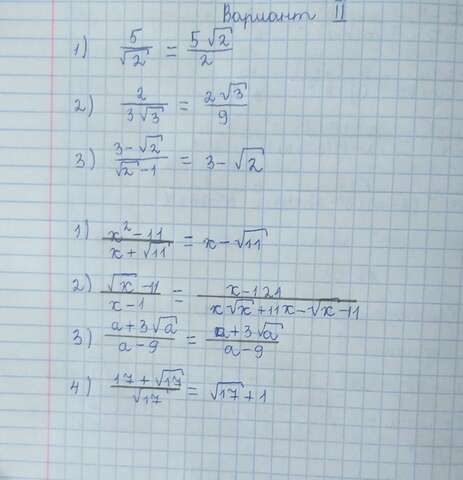 Вариант II
1) 5/√2 = 5√2/2
2) 2/3√3 = 2√3/9
3) 3-√2/√2-1 = 3-√2
1) x²-11/x+√11 = x-√11
2) √x-11/x-1 = x-121/x√x+11x-√x-11
3) a+3√a/a-9 = a+3√a/a-9
4) 17+√17/√17 = √17+1